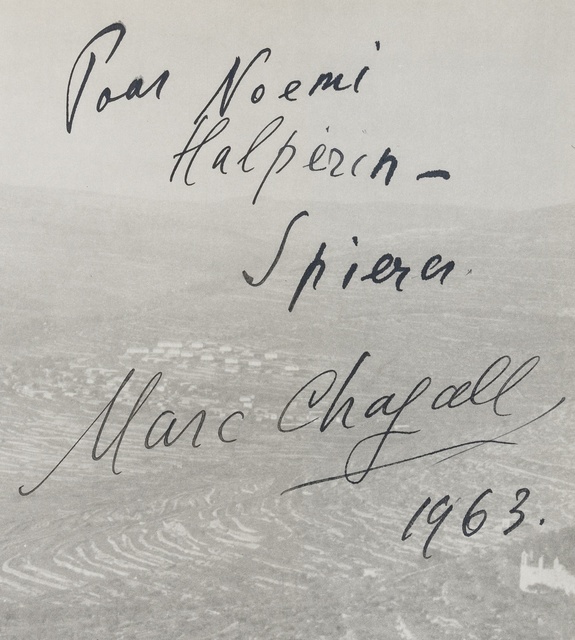 Pour Noemi
Halpérin -
Spierer.
Marc Chagall
1963.